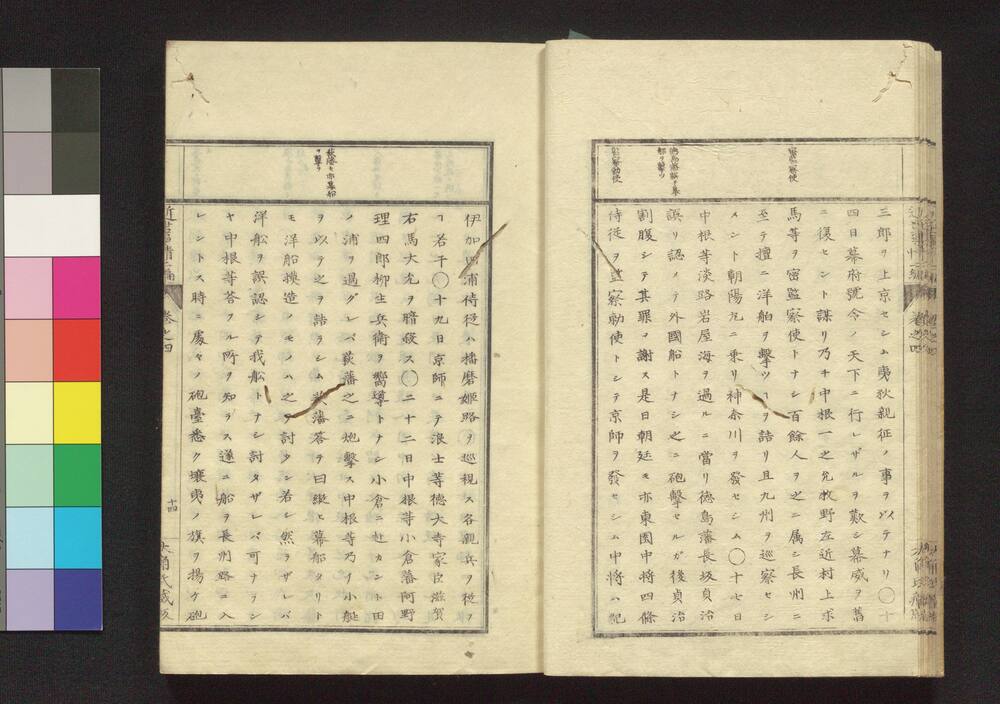 三郎ヲ上京セシム夷狄親征ノ事ヲ以テナリ〇十
四日暮府號令ノ天下ニ行レザルヲ歎シ幕威ヲ舊
ニ復セント謀リ乃チ中根一之允牧野左近村上求
馬等ヲ密監察使トナシ百餘人ヲ之ニ属シ長州ニ
至テ擅ニ洋舶ヲ擊ツヿヲ詰リ且九州ヲ巡察セシ
メント朝陽丸ニ乗リ神奈川ヲ發セシム〇十七日
中根等淡路岩屋海ヲ過ルニ當リ德島藩長坂貞治
誤リ認メテ外國船トナシ之ニ砲擊セルガ後貞治
割腹シテ其罪ヲ謝ス是日朝廷モ亦東園中将四條
侍従ヲ監察勅使トシテ京師ヲ發セシム中将ハ紀
監察勅使
伊加田浦侍従ハ播磨姫路ヲ巡視ス各親兵ヲ従フ
ヿ若干〇十九日京師ニテ浪士等德大寺家臣滋賀
右馬大允ヲ暗殺ス〇二十二日中根等小倉藩阿野
理四郎柳生兵衛ヲ嚮導トナシ小倉ニ赴カント田
ノ浦ヲ過グレバ萩藩之ニ炮擊ス中根等乃チ小艇
ヲ以テ之ヲ詰ラシム萩藩荅ヲ曰縦ヒ幕船タリト
モ洋船摸造ノモノハ之ヲ討タン若シ然ラザレバ
洋船ヲ誤認シテ我舩トナシ討タザレバ可ナラン
ヤ中根等荅フル所ヲ知ラス遂ニ船ヲ長州路ニ入
レントス時ニ處々ノ砲臺悉ク壤夷ノ旗ヲ揚ケ砲
萩藩モ亦幕船
ヲ擊ツ
卷之四
十四